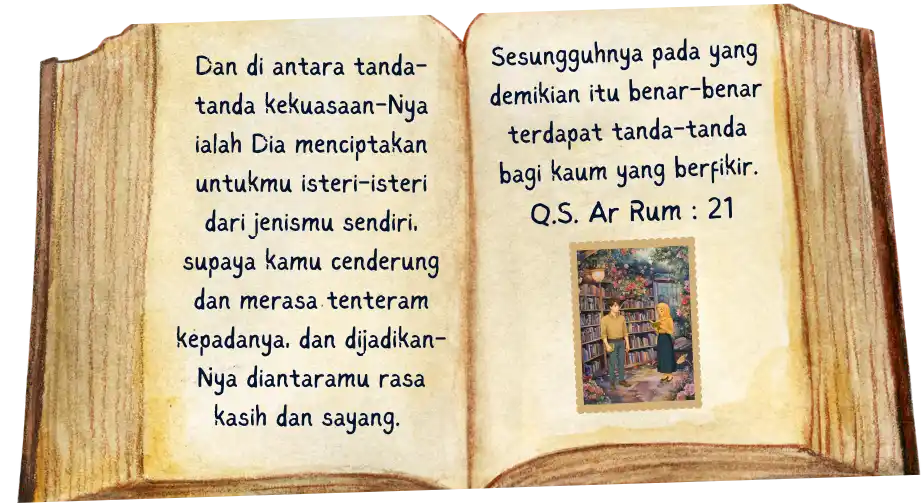 Dan di antara tanda-
tanda kekuasaan-Nya
ialah Dia menciptakan
untukmu isteri-isteri
dari jenismu sendiri,
supaya kamu cenderung
dan merasa tenteram
kepadanya, dan dijadikan-
Nya diantaramu rasa
kasih dan sayang.
Sesungguhnya pada yang
demikian itu benar-benar
terdapat tanda-tanda
bagi kaum yang berfikir.
Q.S. Ar Rum : 21